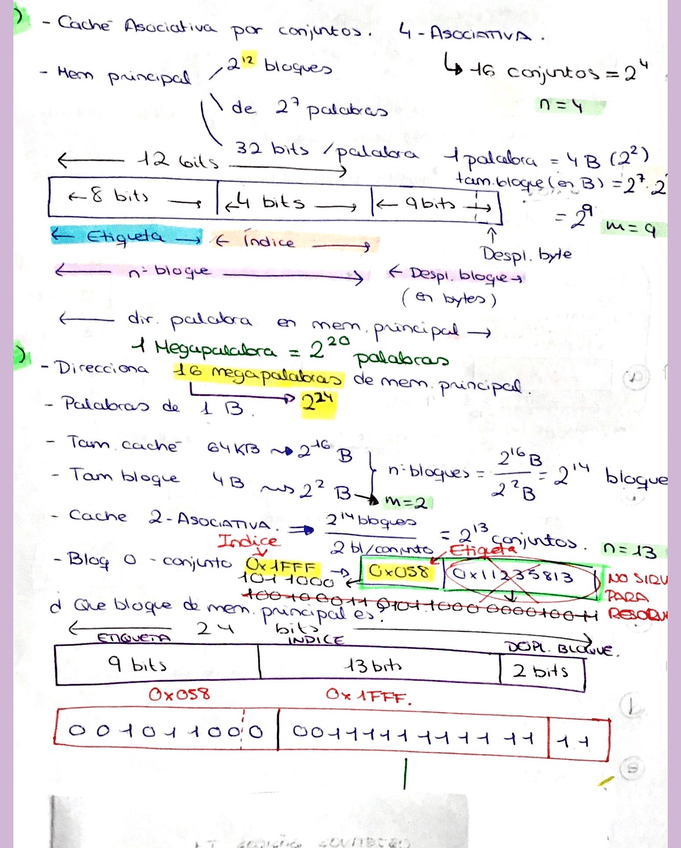 - Caché Asociativa por conjuntos. 4-ASOCIATIVA.
↳ 16 conjuntos = 2^4
n=4
- Mem principal 2^12 bloques
de 2^7 palabras
32 bits / palabra
1 palabra = 4 B (2^2)
tam.bloque (en B) = 2^7 · 2
= 2^9 m=9
← 12 bits →
← 8 bits → ← 4 bits → ← 9 bits →
← Etiqueta → ← Índice → Despl. byte
← nº bloque → ← Despl. bloque →
(en bytes)
← dir. palabra en mem. principal →
1 Megapalabra = 2^20 palabras
- Direcciona 16 megapalabras de mem. principal.
- Palabras de 1 B. 2^24
- Tam caché 64KB → 2^16 B
- Tam bloque 4B → 2^2 B → m=2
nº bloques = 2^16 B / 2^2 B = 2^14 bloque
- Cache 2-ASOCIATIVA. ⇒ 2^14 bloques / 2 bl/conjunto = 2^13 conjuntos. n=13
Indice Etiqueta
- Bloq 0 - conjunto 0x1FFF → 0x058 0x11235813 NO SIRV
1011000 ← PARA
RESOLV
d Que bloque de mem. principal es.
← 24 bits →
ETIQUETA INDICE DSPL. BLOQUE.
9 bits 13 bits 2 bits
0x058 0x1FFF.
001011000 0011111111111 11